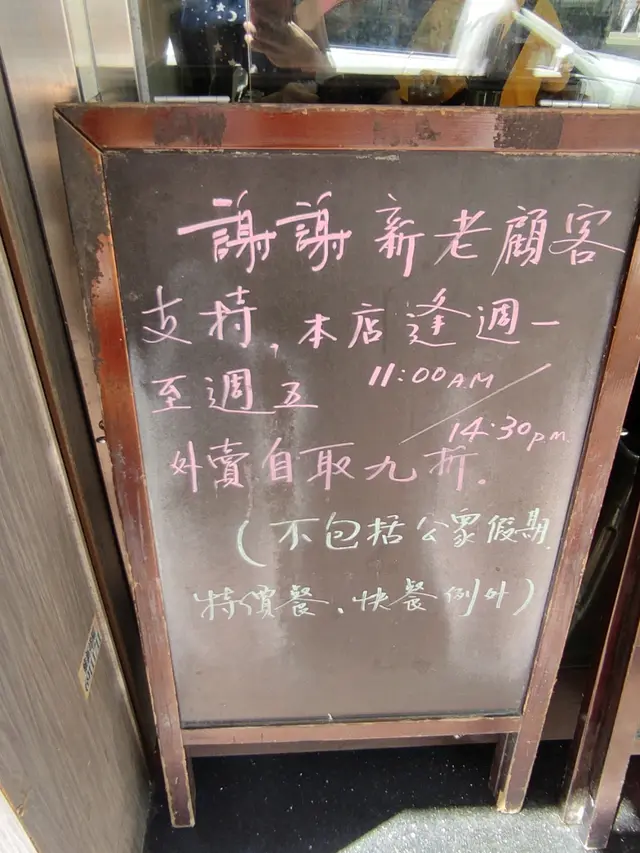 謝謝新老顧客
支持,本店逢週一
至週五 11:00AM/14:30pm
外賣自取九折.
(不包括公眾假期
特價餐、快餐例外)